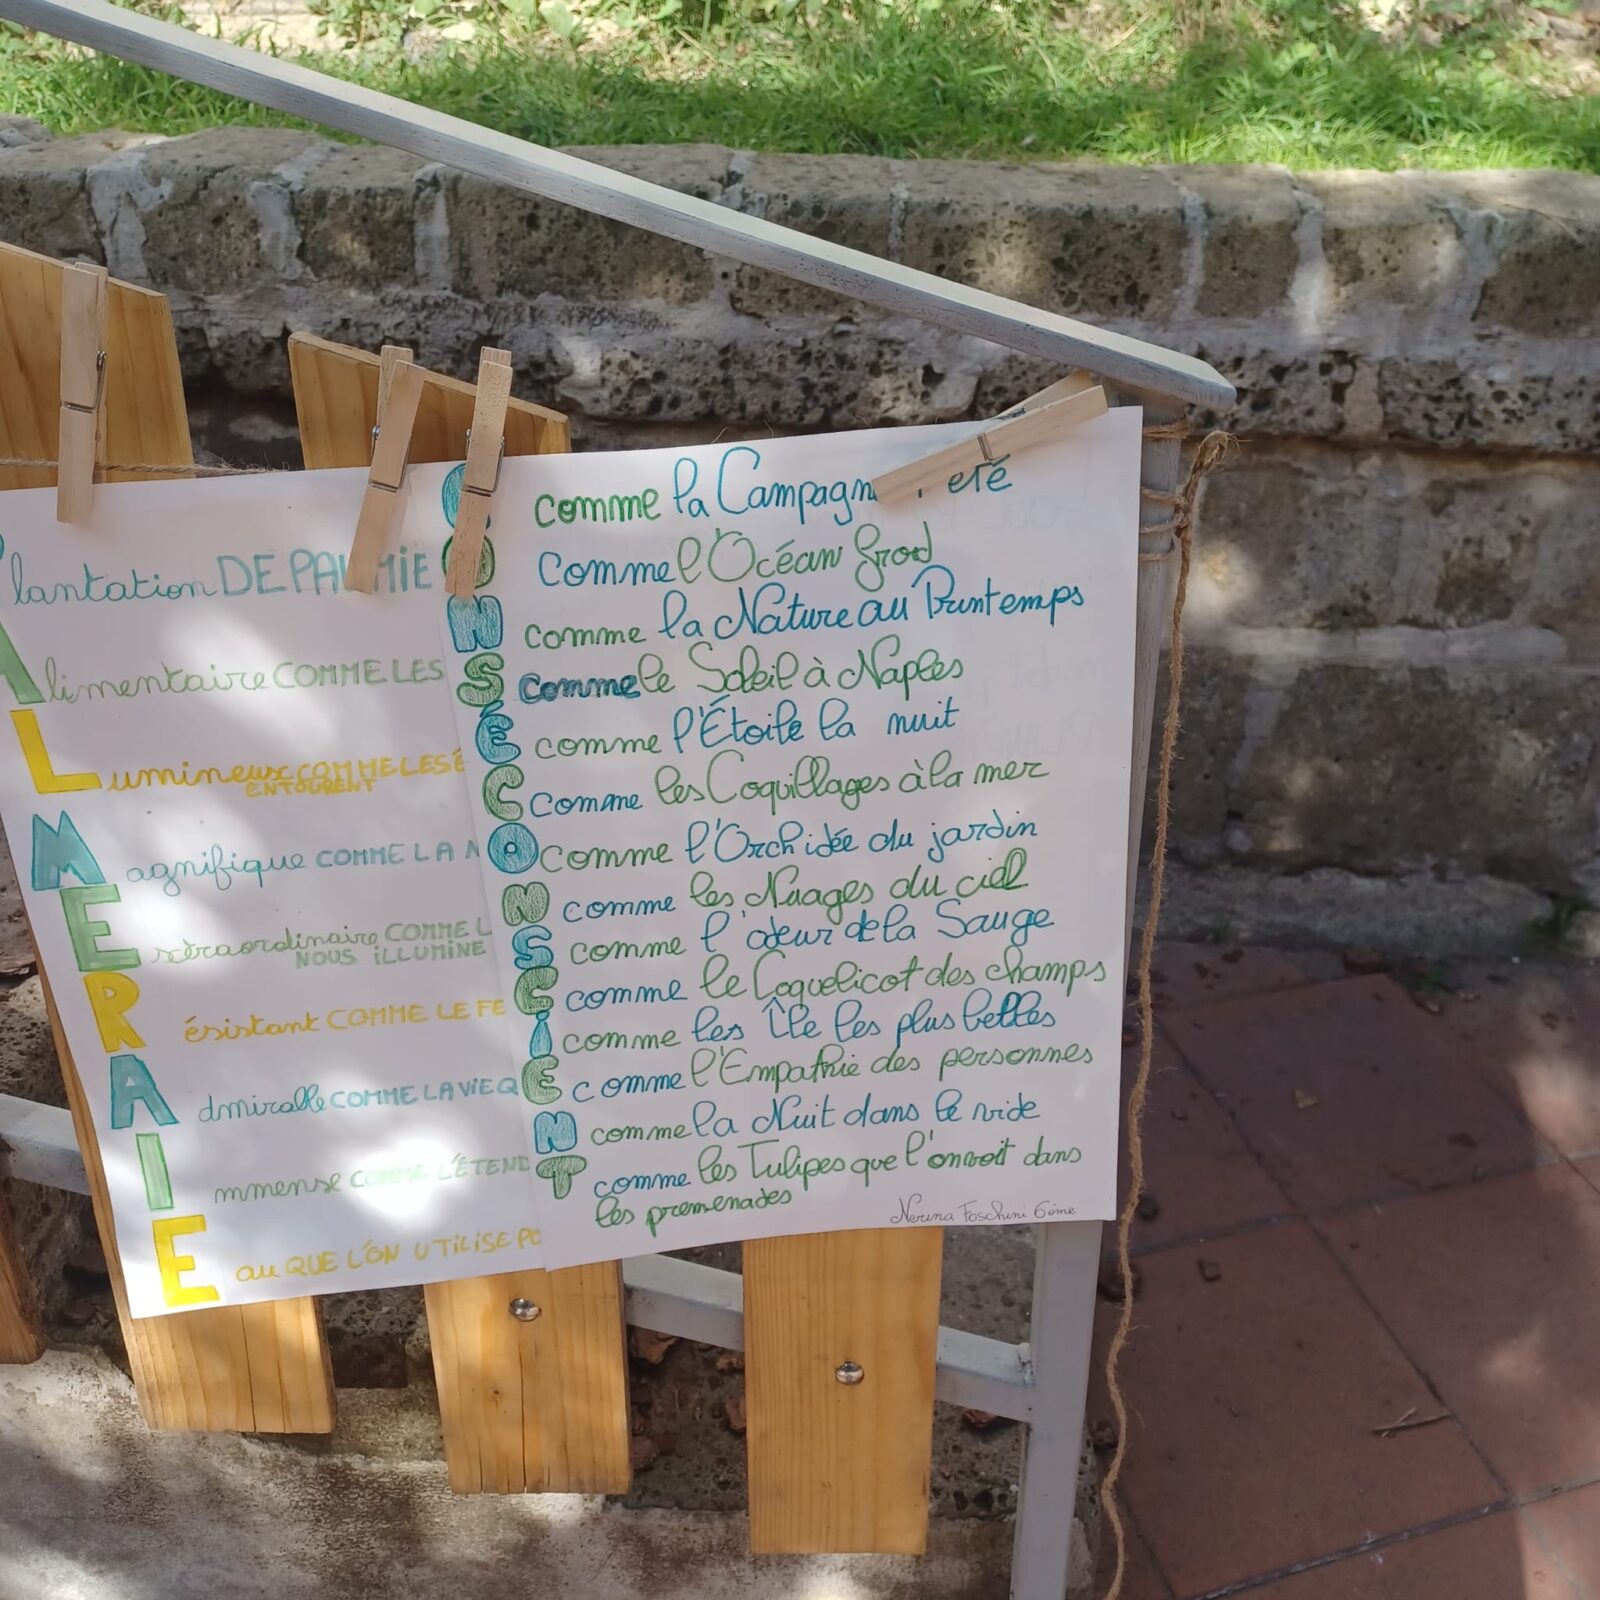 Plantation DE PALMIE
Alimentaire COMME LES
Lumineux COMME LES É
ENTOURENT
Magnifique COMME LA N
Extraordinaire COMME L
NOUS ILLUMINE
Résistant COMME LE FE
Admirable COMME LA VIE Q
Immense COMME L'ÉTEND
Eau QUE L'ON UTILISE PO
C comme la Campagn été
O comme l'Océan froid
N comme la Nature au Printemps
S comme le Soleil à Naples
É comme l'Étoile la nuit
C comme les Coquillages à la mer
O comme l'Orchidée du jardin
N comme les Nuages du ciel
S comme l'odeur de la Sauge
C comme le Coquelicot des champs
I comme les Île les plus belles
E comme l'Empathie des personnes
N comme la Nuit dans le vide
T comme les Tulipes que l'on voit dans
les promenades
Nerina Foschini 6ème